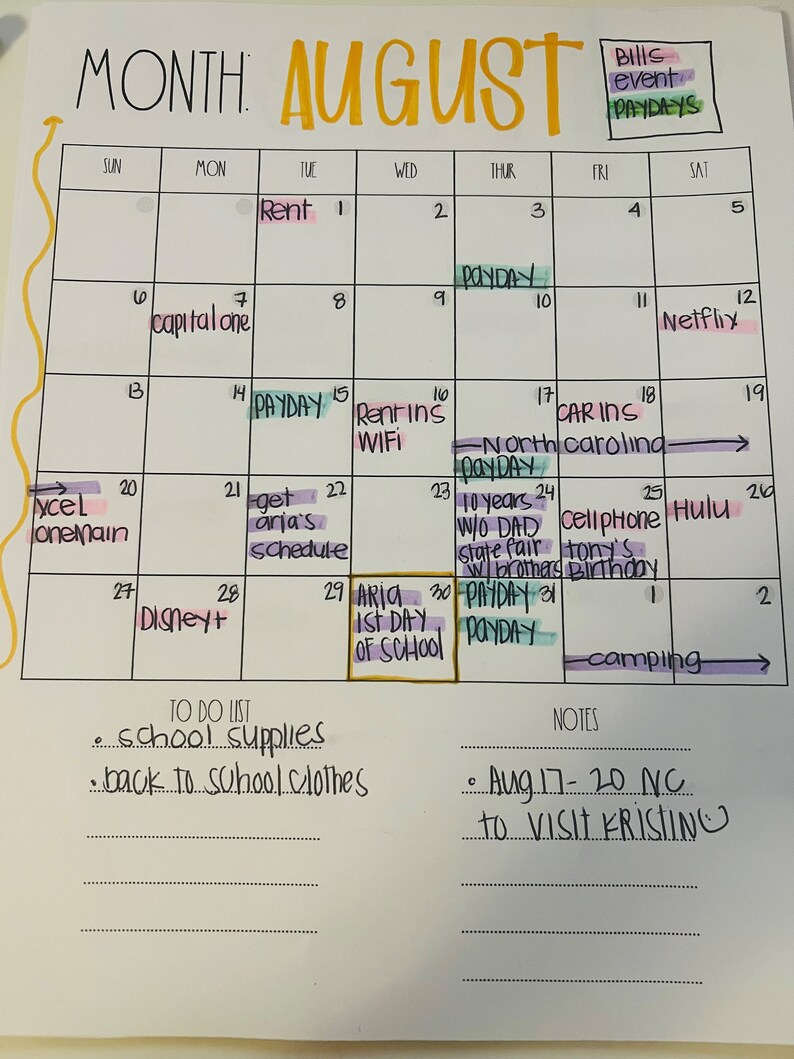 MONTH: AUGUST
Bills
event
PAYDAYS
SUN MON TUE WED THUR FRI SAT
Rent 1 2 3 4 5
PAYDAY
6 7 8 9 10 11 12
capital one
Netflix
13 14 15 16 17 18 19
PAYDAY
Rent ins
WIFI
CAR INS
North carolina
PAYDAY
20 21 22 23 24 25 26
xcel
oneMain
get
aria's
schedule
10 years
W/O DAD
state fair
w/ brothers
cellphone
tony's
Birthday
Hulu
27 28 29 30 31 1 2
Disney+
ARIA
1ST DAY
OF SCHOOL
PAYDAY
PAYDAY
camping
TO DO LIST
• school supplies
• back to school clothes
NOTES
• Aug 17 - 20 NC
to VISIT KRISTIN